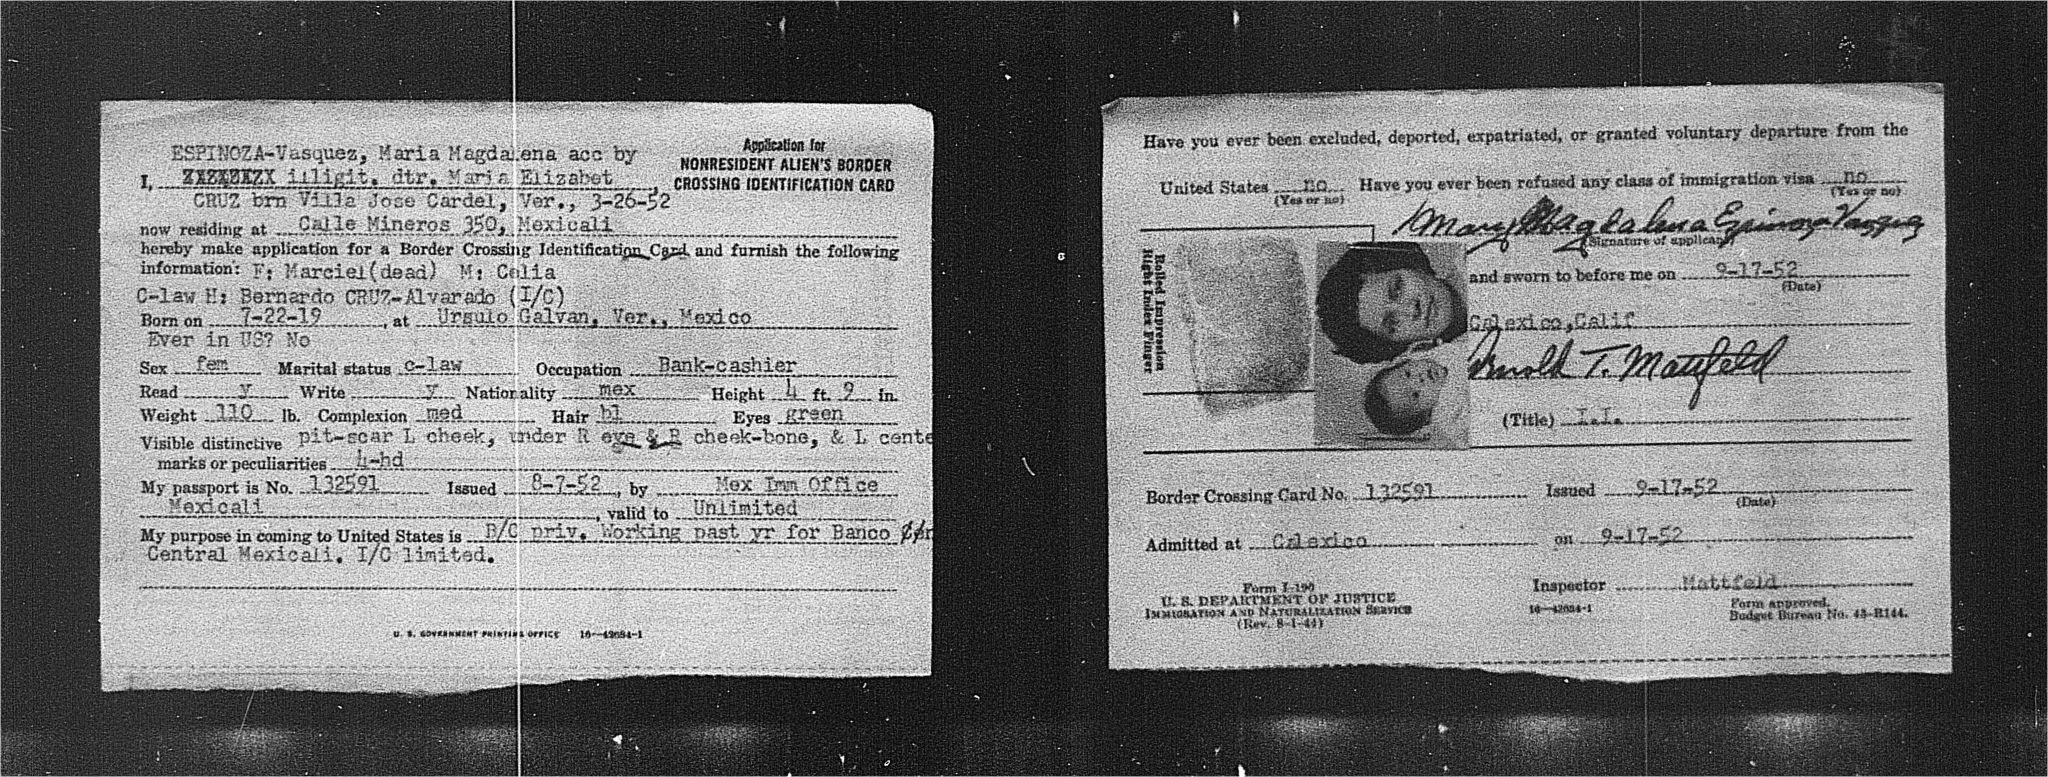 Application for
NONRESIDENT ALIEN'S BORDER
CROSSING IDENTIFICATION CARD
ESPINOZA-Vasquez, Maria Magdalena acc by
I, illigit. dtr. Maria Elizabet
CRUZ brn Villa Jose Cardel, Ver., 3-26-52
now residing at Calle Mineros 350, Mexicali
hereby make application for a Border Crossing Identification Card and furnish the following
information: F: Marciel(dead) M: Celia
C-law H: Bernardo CRUZ-Alvarado (I/C)
Born on 7-22-19, at Ursulo Galvan, Ver., Mexico
Ever in US? No
Sex fem Marital status c-law Occupation Bank-cashier
Read y Write y Nationality mex Height 4 ft. 9 in.
Weight 110 lb. Complexion med Hair bl Eyes green
Visible distinctive pit-scar L cheek, under R eye & R cheek-bone, & L cente
marks or peculiarities 4-hd
My passport is No. 132591 Issued 8-7-52, by Mex Imm Office
Mexicali, valid to Unlimited
My purpose in coming to United States is B/C priv. Working past yr for Banco
Central Mexicali. I/C limited.
U. S. GOVERNMENT PRINTING OFFICE 16—42684-1
Have you ever been excluded, deported, expatriated, or granted voluntary departure from the
United States no Have you ever been refused any class of immigration visa no
(Yes or no) (Yes or no)
Mary Magdalena Espinoza Vasquez
(Signature of applicant)
Rolled Impression
Right Index Finger
and sworn to before me on 9-17-52
(Date)
Calexico, Calif
Arnold T. Mattfeld
(Title) I.I.
Border Crossing Card No. 132591 Issued 9-17-52
(Date)
Admitted at Calexico on 9-17-52
Inspector Mattfeld
Form I-190
U. S. DEPARTMENT OF JUSTICE
IMMIGRATION AND NATURALIZATION SERVICE
(Rev. 8-1-44)
16—42684-1
Form approved.
Budget Bureau No. 43-R144.